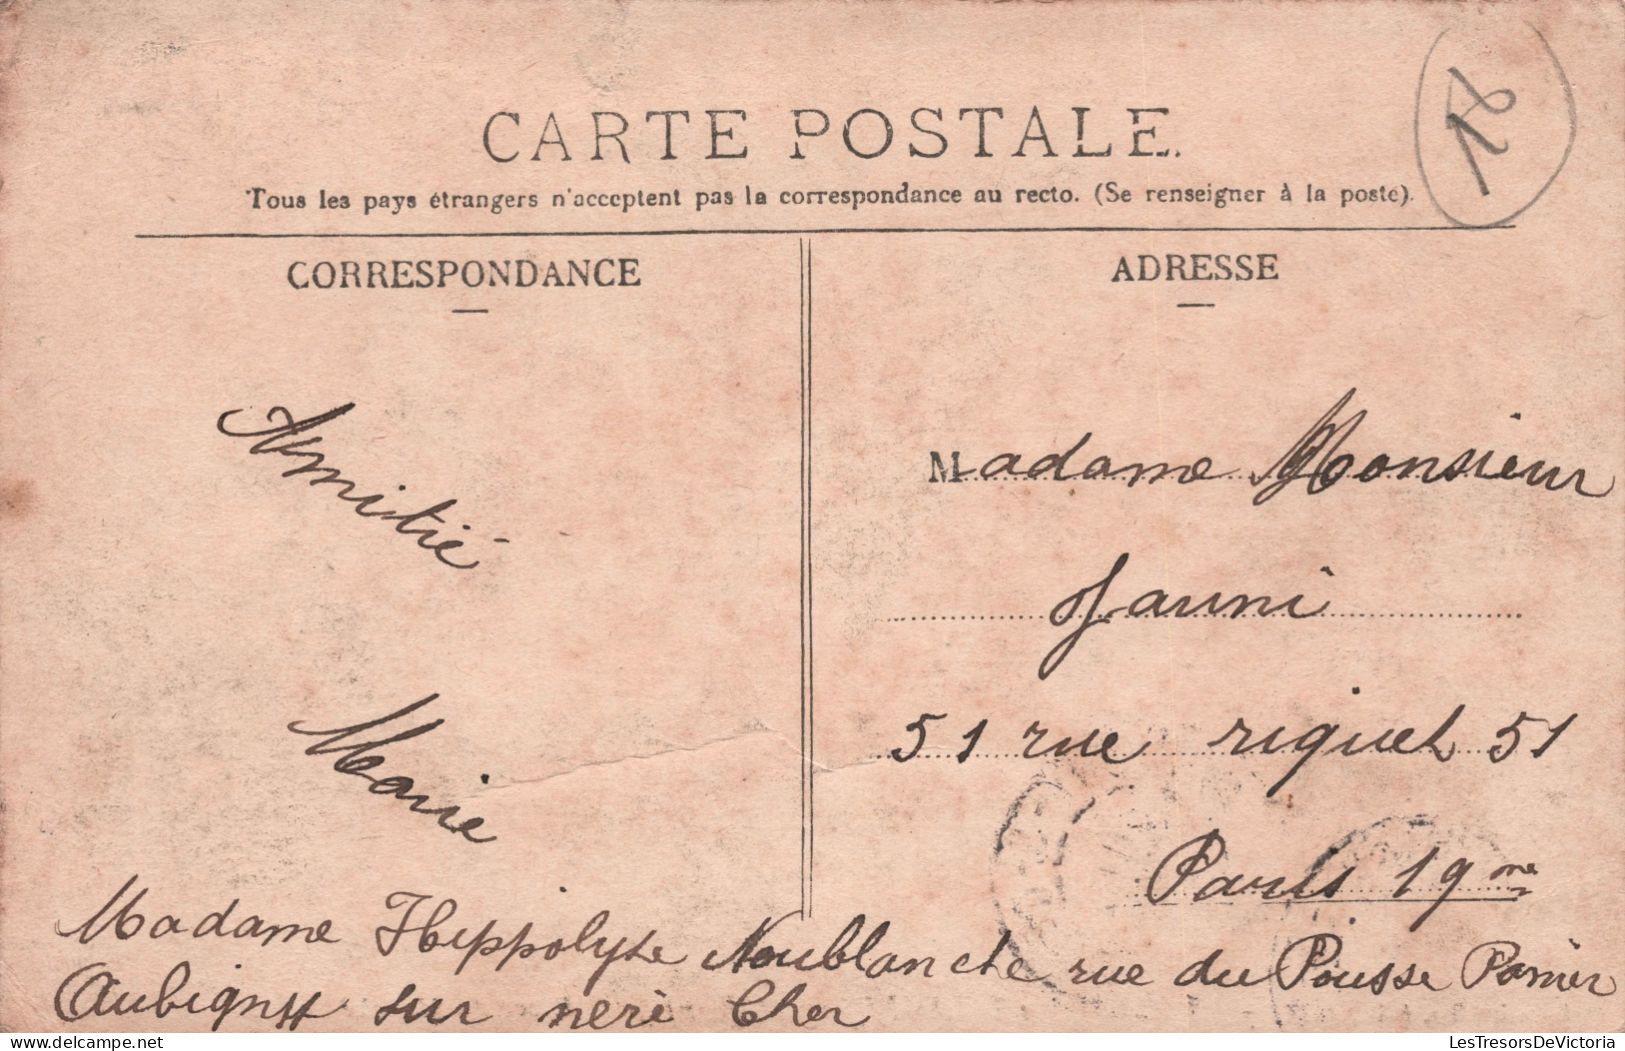 18
CARTE POSTALE.
Tous les pays étrangers n'acceptent pas la correspondance au recto. (Se renseigner à la poste).
CORRESPONDANCE
ADRESSE
Amitié
Marie
Madame Monsieur
Jauni
51 rue riquet 51
Paris 19me
Madame Hippolyte Noublanche rue du Pousse Panier
Aubigny sur nere Cher
LesTresorsDeVictoria
delcampe.net